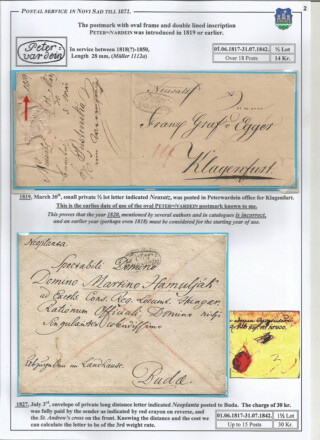 POSTAL SERVICE IN NOVI SAD TILL 1871.
2
The postmark with oval frame and double lined inscription
PETER=VARDEIN was introduced in 1819 or earlier.
Peter=
vardein
In service between 1818(?)-1850,
Length 28 mm, (Müller 1112a)
01.06.1817-31.07.1842.
½ Lot
Over 18 Posts
14 Kr.
1819
Neusatz
Franz Graf v Egger
Klagenfurt
1819, March 30th, small private ½ lot letter indicated Neusatz, was posted in Peterwardein office for Klagenfurt.
This is the earlies date of use of the oval PETER=VARDEIN postmark known to me.
This proves that year 1820, mentioned by several authors and in catalogues is incorrect,
and an earlier year (perhaps even 1818) must be considered for the starting year of use.
Neoplanta
Spectabili Domino
Domino Martino Hamulják
Budæ
1827, July 3rd, envelope of private long distance letter indicated Neoplanta posted to Buda. The charge of 30 kr.
was fully paid by the sender as indicated by red crayon on reverse, and
the St. Andrew's cross on the front. Knowing the distance and the cost we
can calculate the letter to be of the 3rd weight rate.
01.06.1817-31.07.1842.
1½ Lot
Up to 15 Posts
30 Kr.